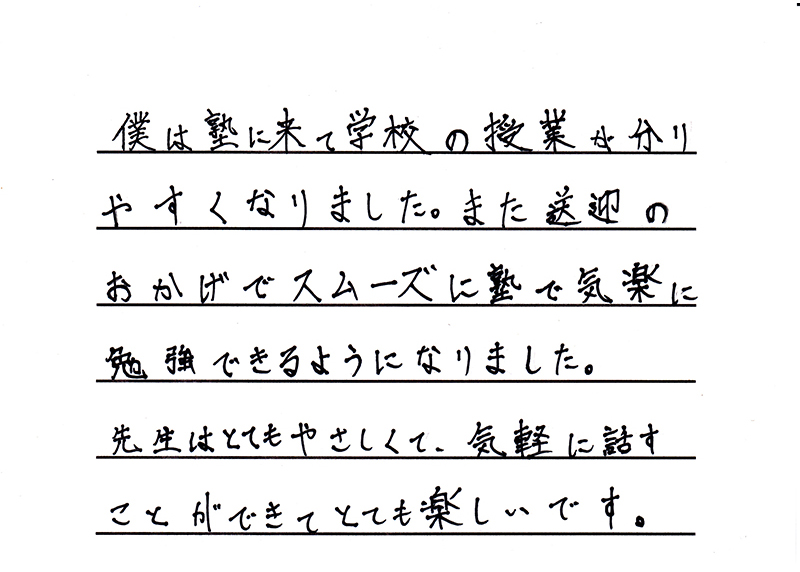 僕は塾に来て学校の授業が分り
やすくなりました。また送迎の
おかげでスムーズに塾で気楽に
勉強できるようになりました。
先生はとてもやさしくて、気軽に話す
ことができてとても楽しいです。